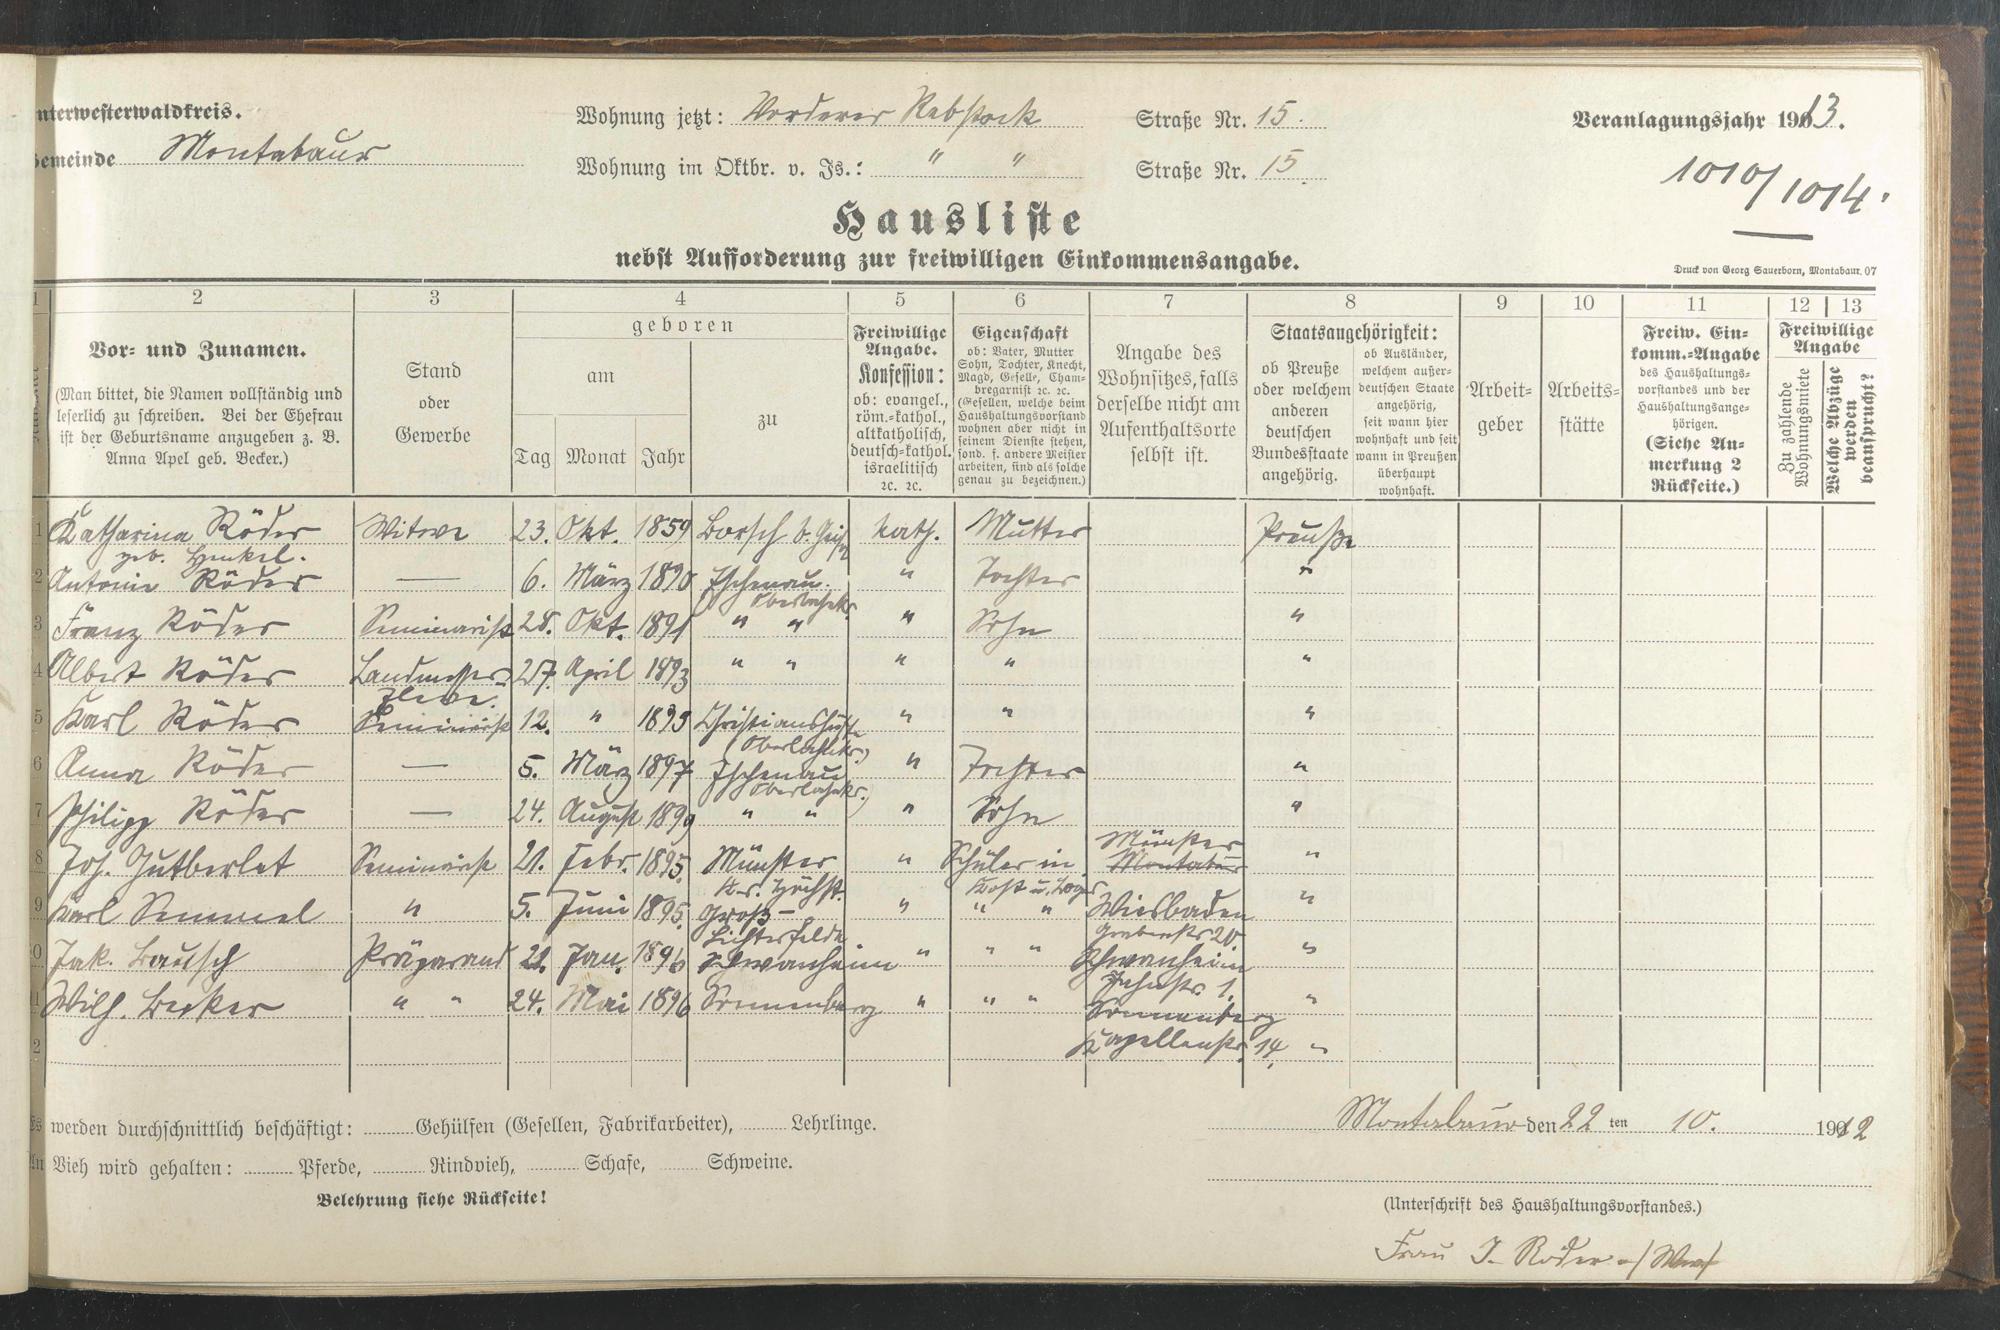 nterwesterwaldkreis.
Gemeinde Montabaur
Wohnung jetzt: Vorderer Rebstock Straße Nr. 15.
Wohnung im Oktbr. v. Js.: " " Straße Nr. 15.
Veranlagungsjahr 1913.
1010/1014.
Hausliste
nebst Aufforderung zur freiwilligen Einkommensangabe.
Druck von Georg Sauerborn, Montabaur. 07
1 2 3 4 5 6 7 8 9 10 11 12 13
Vor- und Zunamen.
(Man bittet, die Namen vollständig und
leserlich zu schreiben. Bei der Ehefrau
ist der Geburtsname anzugeben z. B.
Anna Apel geb. Becker.)
Stand
oder
Gewerbe
geboren
am
Tag Monat Jahr
zu
Freiwillige
Angabe.
Konfession:
ob: evangel.,
röm.-kathol.,
altkatholisch,
deutsch-kathol.
israelitisch
ꝛc. ꝛc.
Eigenschaft
ob: Vater, Mutter
Sohn, Tochter, Knecht,
Magd, Geselle, Cham-
bregarnist ꝛc. ꝛc.
(Gesellen, welche beim
Haushaltungsvorstand
wohnen aber nicht in
seinem Dienste stehen,
sond. f. andere Meister
arbeiten, sind als solche
genau zu bezeichnen.)
Angabe des
Wohnsitzes, falls
derselbe nicht am
Aufenthaltsorte
selbst ist.
Staatsangehörigkeit:
ob Preuße
oder welchem
anderen
deutschen
Bundesstaate
angehörig.
ob Ausländer,
welchem außer-
deutschen Staate
angehörig,
seit wann hier
wohnhaft und seit
wann in Preußen
überhaupt
wohnhaft.
Arbeit-
geber
Arbeits-
stätte
Freiw. Ein-
komm.-Angabe
des Haushaltungs-
vorstandes und der
Haushaltungsange-
hörigen.
(Siehe An-
merkung 2
Rückseite.)
Freiwillige
Angabe
Zu zahlende
Wohnungsmiete
Welche Abzüge
werden
beansprucht?
1 Katharina Röder Witwe 23. Okt. 1859 Borsch b. Geisa kath. Mutter Preuße
geb. Henkel.
2 Antonie Röder — 6. März 1890 Eschenau " Tochter "
Oberlahnkr.
3 Franz Röder Seminarist 28. Okt. 1891 " " " Sohn "
4 Albert Röder Landmesser- 27. April 1893 " " " " "
Eleve.
5 Karl Röder Seminarist 12. " 1895 Christianshütte " " "
(Oberlahnkr.)
6 Anna Röder — 5. März 1897 Eschenau " Tochter "
Oberlahnkr.)
7 Philipp Röder — 24. August 1899 " " " Sohn "
8 Joh. Gutberlet Seminarist 21. Febr. 1895. Münster " Schüler in Münster "
Kr. Höchst. Kost u. Logis Montabaur
9 Karl Semmel " 5. Juni 1895. Groß- " " " Wiesbaden "
Lichterfelde. Grabenstr 20
10 Jak. Bausch Präparand 22. Jan. 1896 Schwanheim " " " Schwanheim "
Jahnstr. 1.
11 Wilh. Becker " " 24. Mai 1896 Sonnenberg " " " Sonnenberg "
12 Kapellenstr. 14. "
Es werden durchschnittlich beschäftigt: Gehülfen (Gesellen, Fabrikarbeiter), Lehrlinge.
An Vieh wird gehalten: Pferde, Rindvieh, Schafe, Schweine.
Belehrung siehe Rückseite!
Montabaur den 22 ten 10. 1912
(Unterschrift des Haushaltungsvorstandes.)
Frau J. Röder